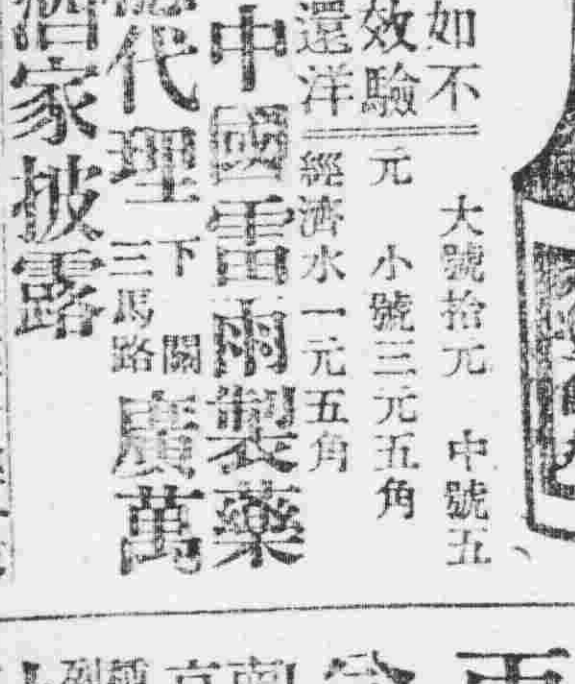 如不
效驗
還洋
大號拾元 中號五
元 小號三元五角
經濟水一元五角
中國雷雨製藥
代理 下關三馬路 廣萬
酒家披露